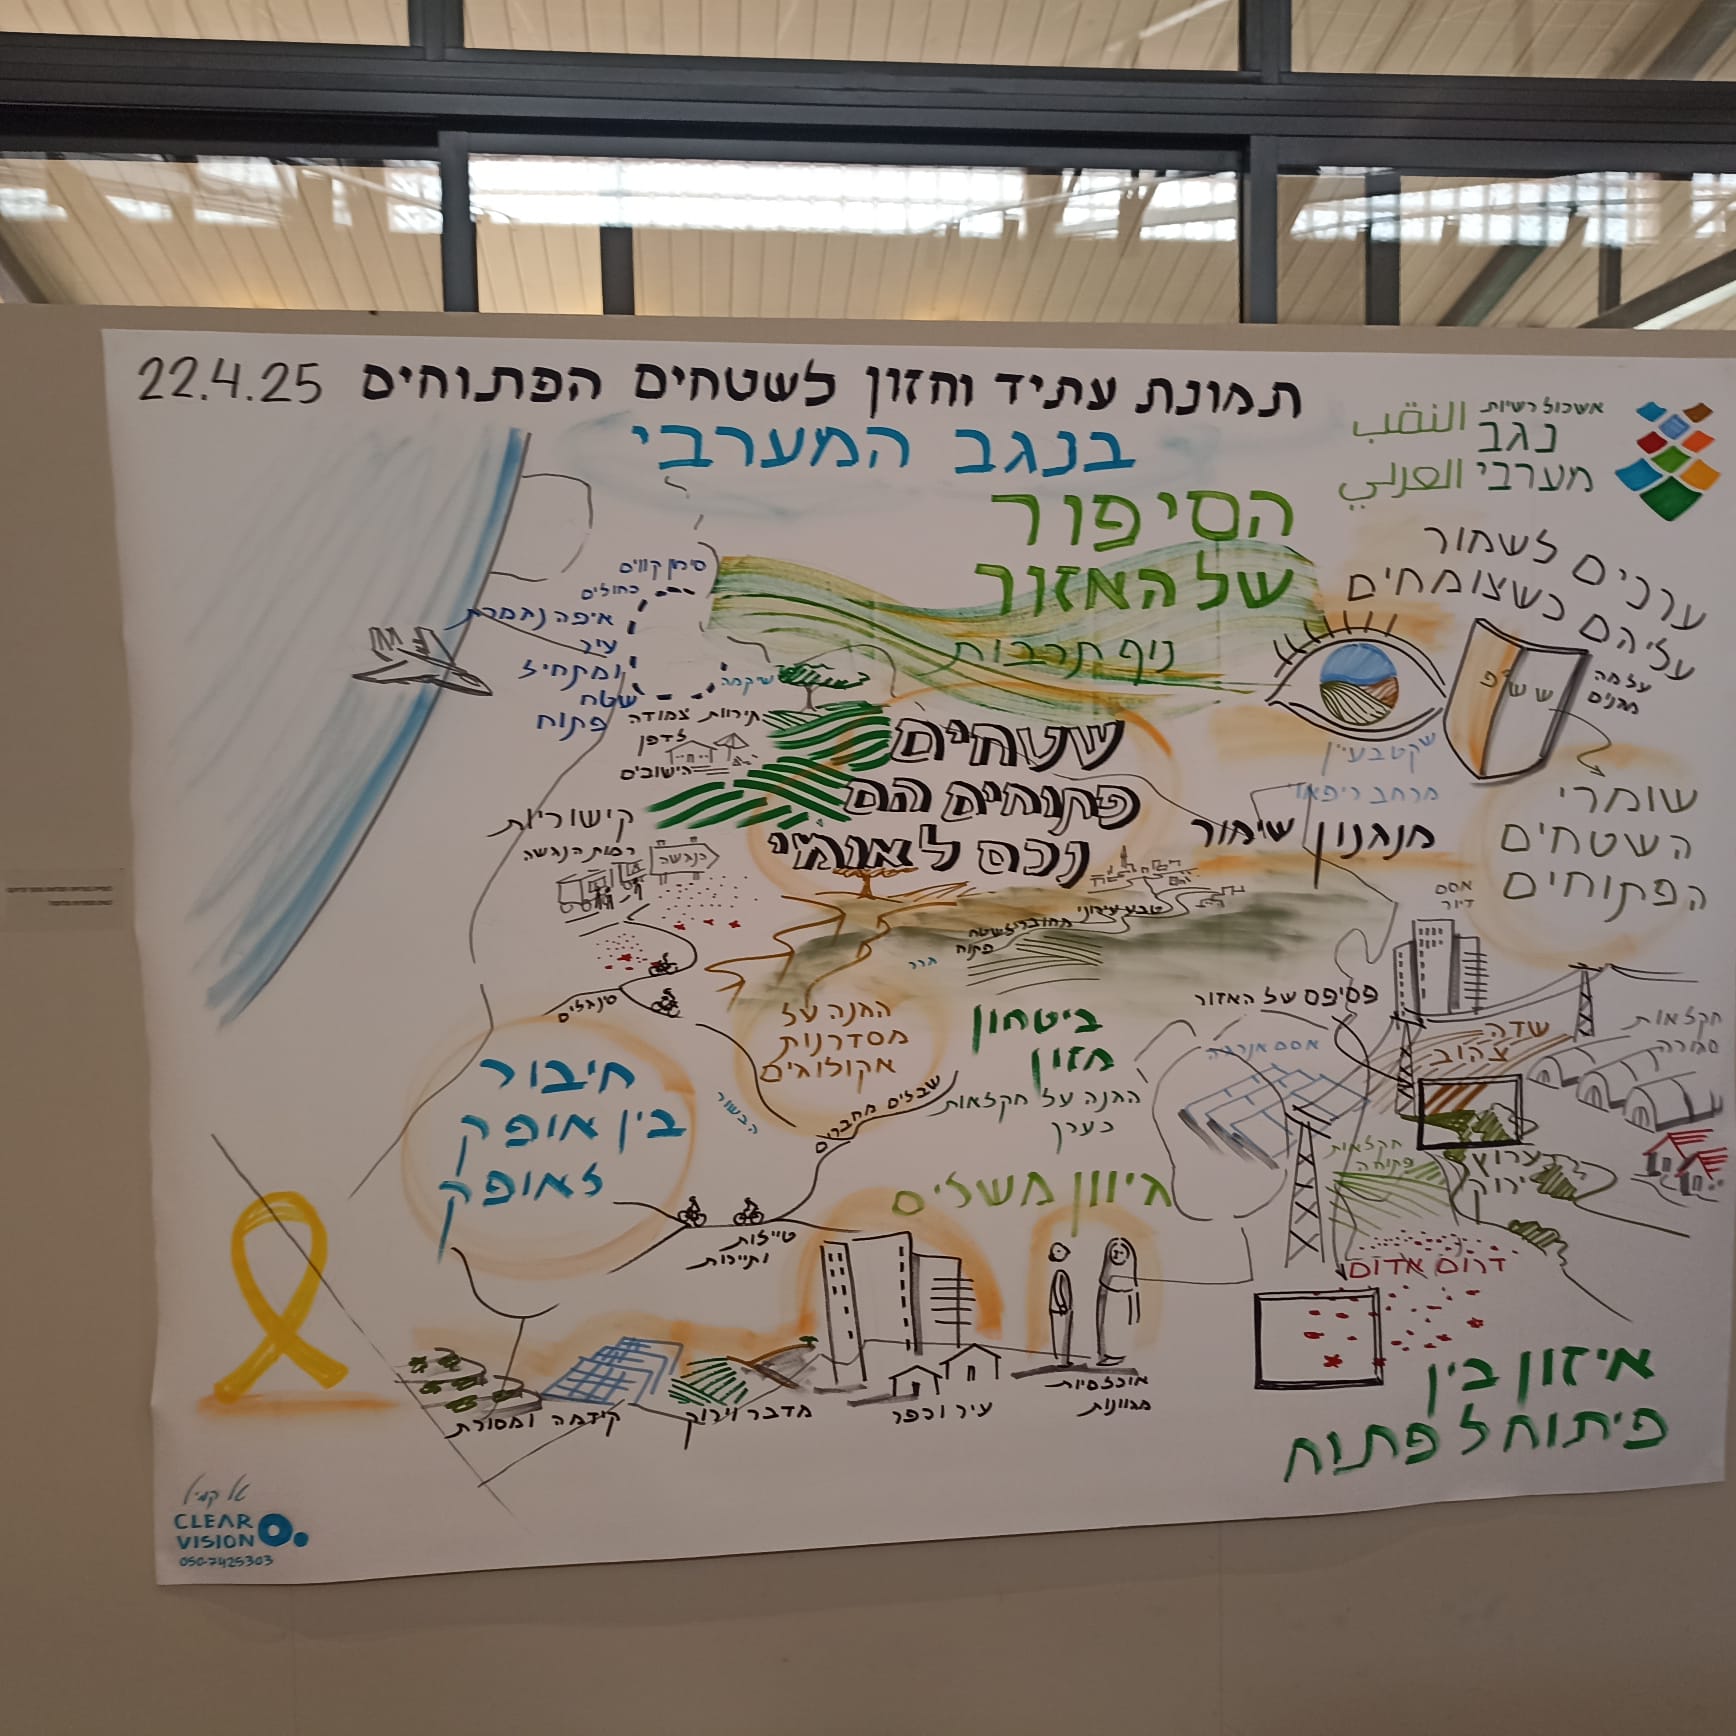 תמונת עתיד וחזון לשטחים הפתוחים 22.4.25
בנגב המערבי
אשכול רשויות
נגב
מערבי
النقب
الغربي
הסיפור
של האזור
נוף תרבות
ערכים לשמור
עליהם כשצומחים
שטחים
פתוחים הם
נכס לאומי
סימון קווים
כחולים
איפה נגמרת
עיר
ומתחיל
שטח
פתוח
שיקמה
תירות צמודה
לדפן
הישובים
קישוריות
רמות הנגשה
הנגשה
סינגלים
שקט בעיין
מרחב ריפאוי
מנגנון שימור
שומרי
השטחים
הפתוחים
טבע עירוני
מחובר לשטח
פתוח
גרר
הגנה על
מסדרונות
אקולוגים
הבשור
ביטחון
מזון
הגנה על חקלאות
כערך
שבילים מחברים
חיבור
בין אופק
לאופק
טיילות
ותיירות
גיוון משלים
אסם
דיור
פסיפס של האזור
אסם אנרגיה
שדה
צהוב
חקלאות
סגורה
חקלאות
פתוחה
ערוץ
ירוק
דרום אדום
איזון בין
פיתוח לפתוח
קידמה ומסורת
מדבר וירוק
עיר וכפר
אוכלוסיות
מגוונות
CLEAR
VISION
050-7425303